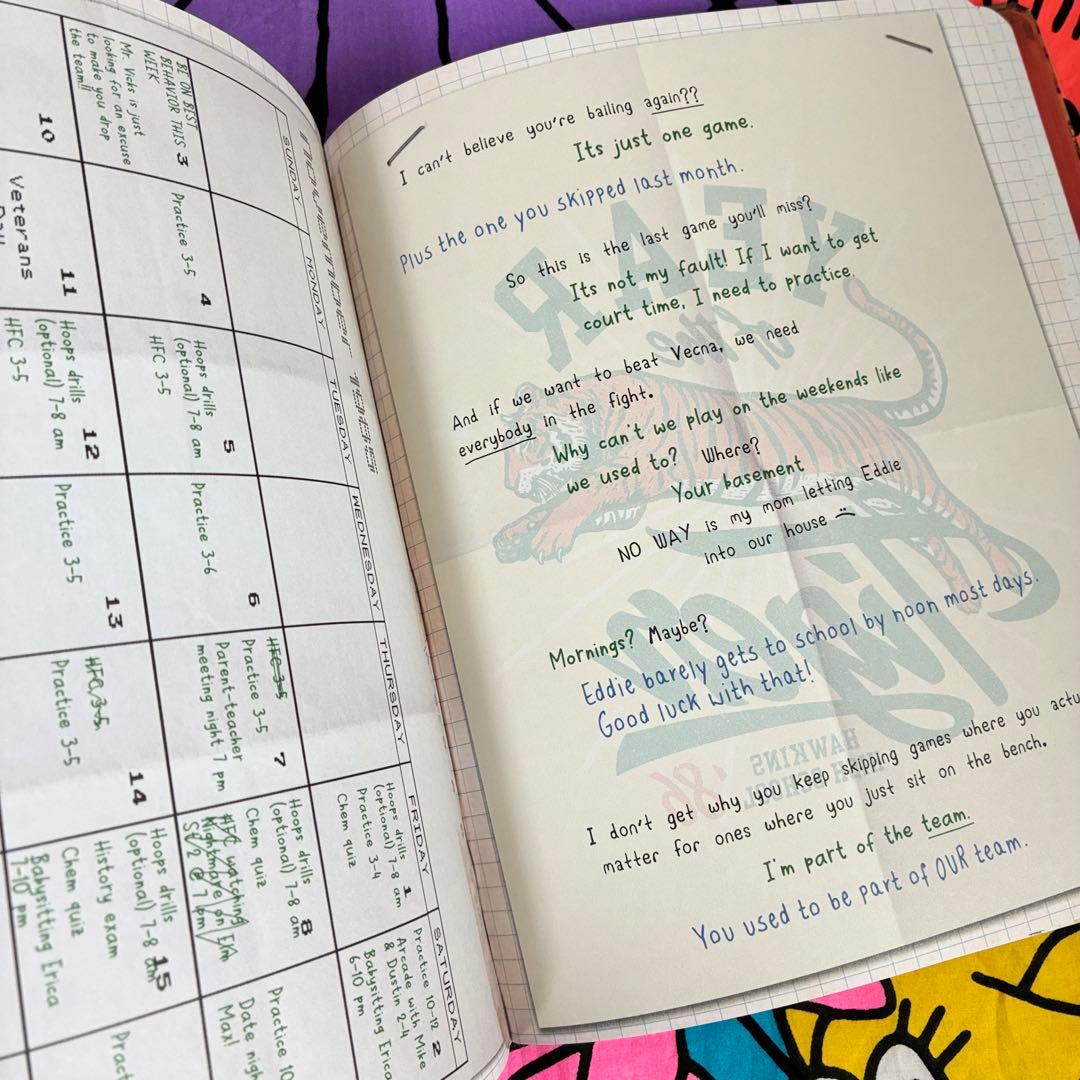 SUNDAY
MONDAY
TUESDAY
WEDNESDAY
THURSDAY
FRIDAY
SATURDAY
1
Hoops drills
(optional) 7-8 am
Practice 3-4
Chem quiz
2
Practice 10-12
Arcade with Mike
& Dustin 2-4
Babysitting Erica
6-10 pm
BE ON BEST
BEHAVIOR THIS
WEEK
3
Mr. Vicks is just
looking for an excuse
to make you drop
the team!!
4
Practice 3-5
5
Hoops drills
(optional) 7-8 am
HFC 3-5
6
Practice 3-6
7
HFC 3-5
Practice 3-5
Parent-teacher
meeting night 7 pm
8
Hoops drills
(optional) 7-8 am
Chem quiz
HFC watching
Nightmare on Elm
St/2 @ 7 pm
Practice 10
Date nigh
Max!
10
11
Veterans
12
Hoops drills
(optional) 7-8 am
HFC 3-5
13
Practice 3-5
14
HFC 3-5
Practice 3-5
15
Hoops drills
(optional) 7-8 am
History exam
Chem quiz
Babysitting Erica
7-10 pm
Pract
I can't believe you're bailing again??
Its just one game.
Plus the one you skipped last month.
So this is the last game you'll miss?
Its not my fault! If I want to get
court time, I need to practice.
And if we want to beat Vecna, we need
everybody in the fight.
Why can't we play on the weekends like
we used to? Where?
Your basement
NO WAY is my mom letting Eddie
into our house
Mornings? Maybe?
Eddie barely gets to school by noon most days.
Good luck with that!
I don't get why you keep skipping games where you actu
matter for ones where you just sit on the bench.
I'm part of the team.
You used to be part of OUR team.
YEAR
of the
Tiger
HAWKINS
HIGH SCHOOL
'86